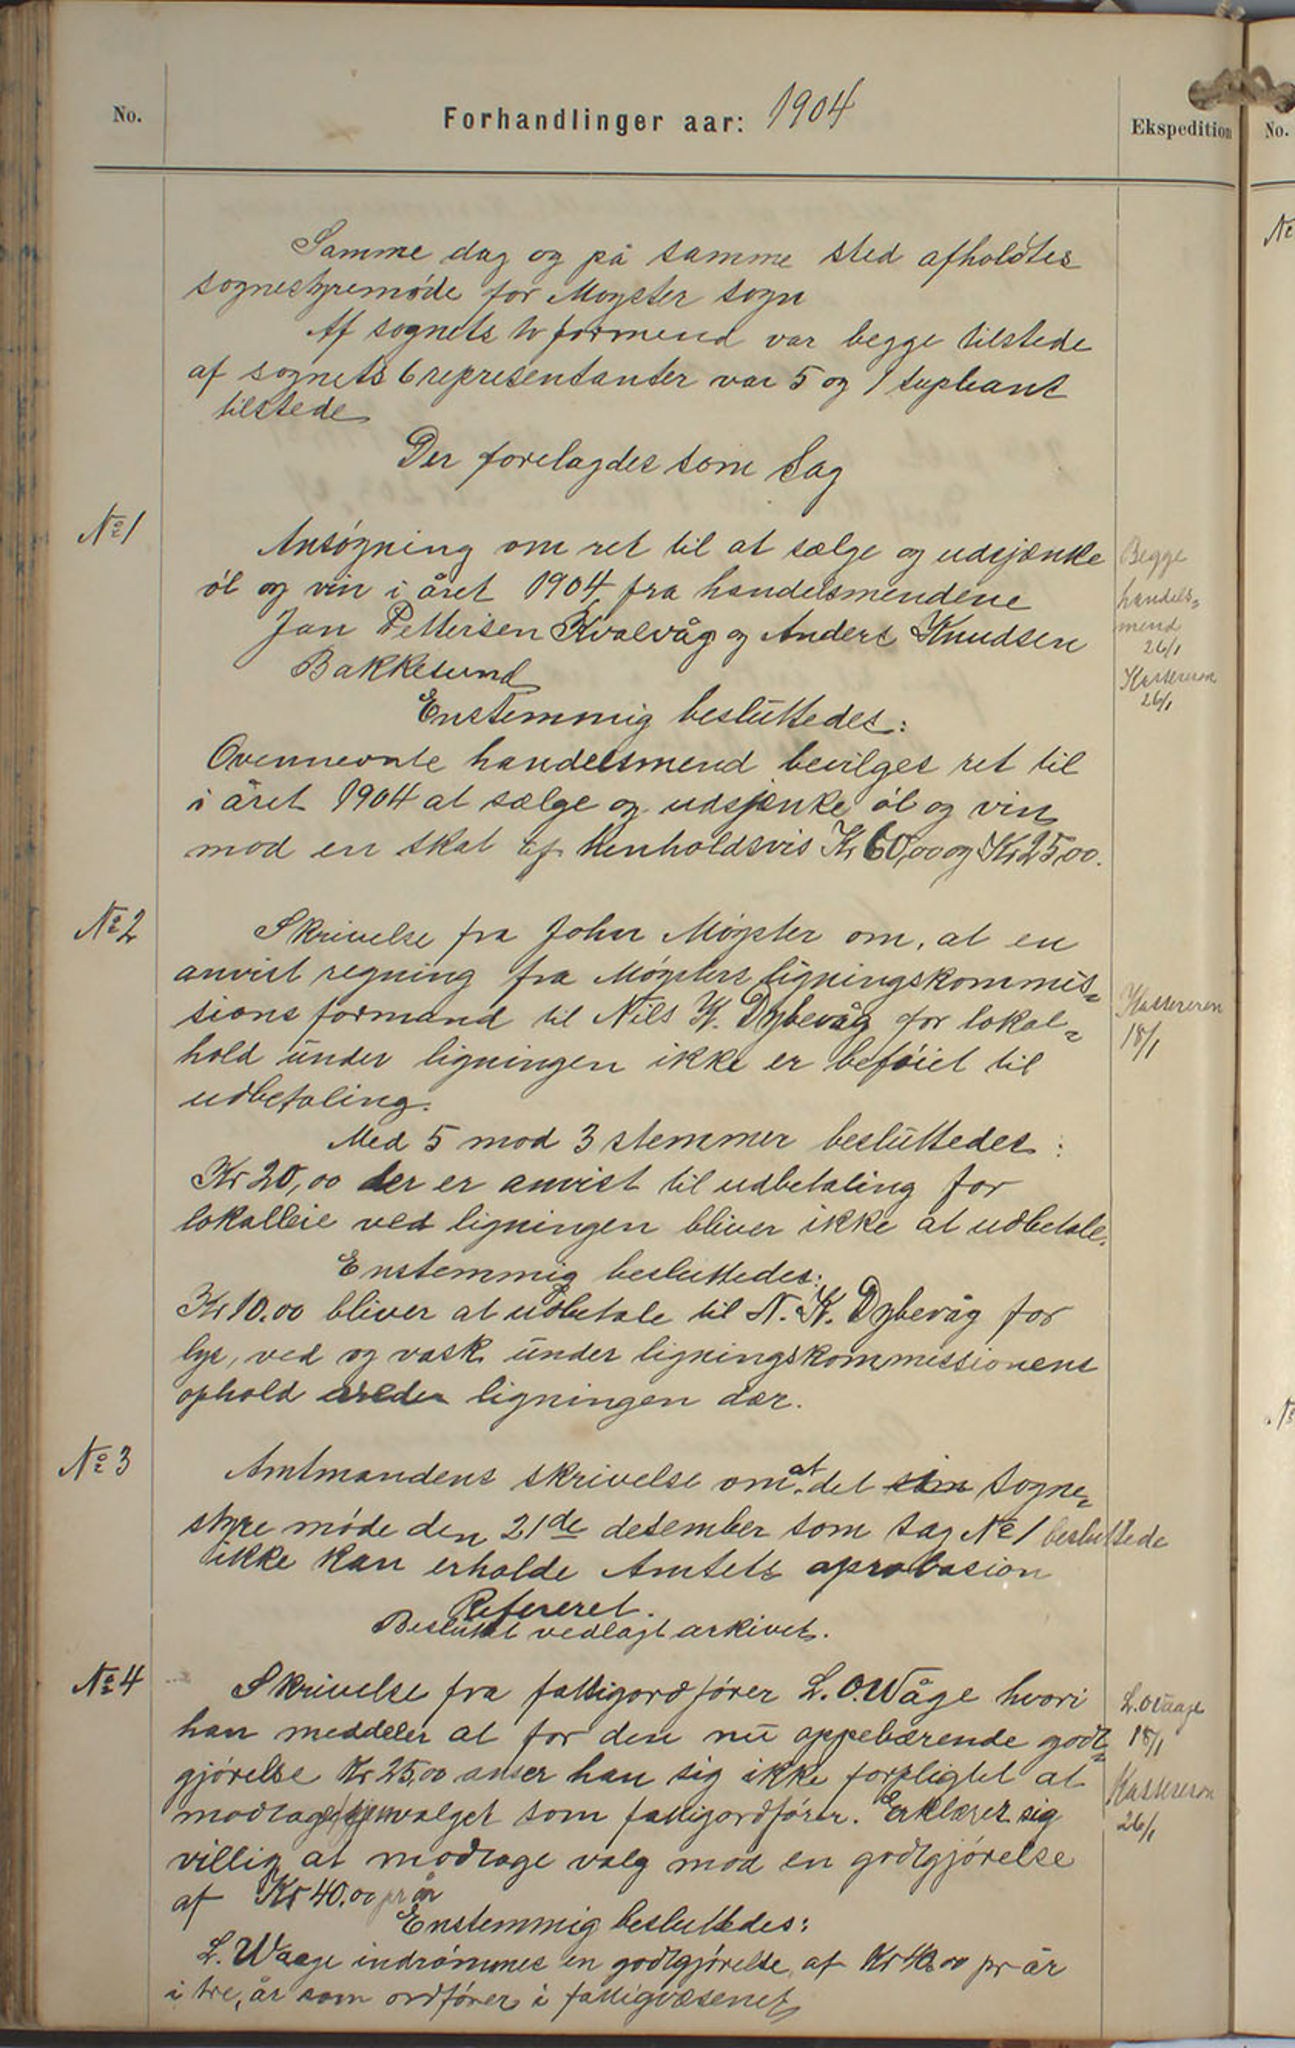 No.
Forhandlinger aar: 1904
Ekspedition
No.
Samme dag og på samme sted afholdtes
sognestyremøde for Møgster sogn
Af sognets to formend var begge tilstede
af sognets 6 representanter var 5 og 1 supleant
tilstede
Der forelagdes som Sag
No 1
Ansøgning om ret til at sælge og udsjænke
øl og vin i året 1904, fra handelsmendene
Jan Pettersen Kvalvåg og Anders Knudsen
Bakkesund
Begge
handels=
mend
26/1
Kassereren
26/1
Enstemmig besluttedes:
Ovennevnte handelsmend bevilges ret til
i året 1904 at sælge og udsjenke øl og vin
mod en skat af henholdsvis Kr 60,00 og Kr 25,00.
No 2
Skrivelse fra John Møgster om, at en
anvist regning fra Møgsters ligningskommis=
sions formand til Nils K. Dybevåg for lokal=
hold under ligningen ikke er beføiet til
udbetaling.
Kassereren
18/1
Med 5 mod 3 stemmer besluttedes:
Kr 20,00 der er anvist til udbetaling for
lokalleie ved ligningen bliver ikke at udbetale.
Enstemmig besluttedes:
Kr 10.00 bliver at udbetale til N. K. Dybevåg for
lys, ved og vask under ligningskommissionens
ophold under ligningen der.
No 3
Amtmandens skrivelse om at det som sogne=
styre møde den 21de desember som sag No 1 besluttede
ikke kan erholde Amtets aprobasion
Refereret.
Besluttet vedlagt arkivet.
No 4
Skrivelse fra fattigordfører L. O. Våge hvori
han meddeler at for den nu oppebærende godt=
gjørelse Kr 25,00 anser han sig ikke forpligtet at
modtage gjenvalget som fattigordfører. Erklærer sig
villig at modtage valg mod en godtgjørelse
af Kr 40.00 pr år
L. O. Vaage
18/1
Kassereren
26/1
Enstemmig besluttedes:
L. Waage indrømmes en godtgjørelse af Kr 40.00 pr år
i tre, år som ordfører i fattigvæsenet